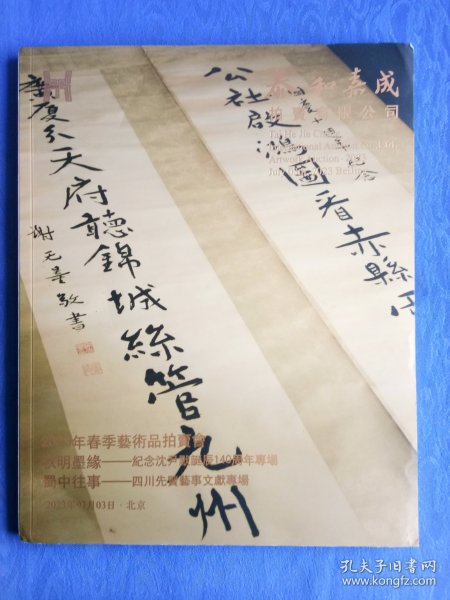 泰和嘉成
拍賣有限公司
Tai He Jia Cheng
International Auction Co., Ltd.
Artwork Auction · 2023
公社啟鴻圖看赤縣
國慶十周年紀念
華夏分天府聽錦城絲管九州
謝无量敬書
2023年春季藝術品拍賣會
秋明墨緣——紀念沈尹默誕辰140周年專場
蜀中往事——四川先賢藝事文獻專場
2023年07月03日·北京
孔夫子旧书网
www.kongfz.com